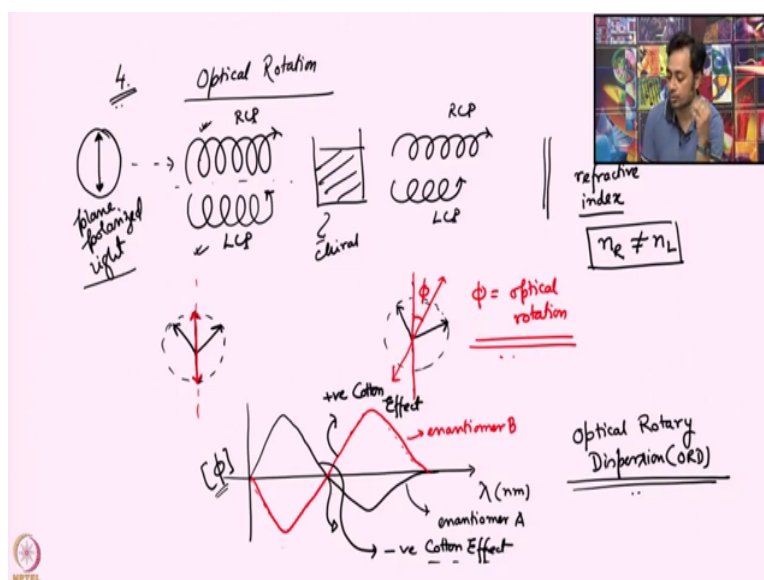 4.
Optical Rotation
RCP
RCP
LCP
LCP
plane
polarized
right
chiral
refractive
index
nR ≠ nL
ϕ
ϕ = optical
rotation
+ve Cotton
Effect
enantiomer B
[ϕ]
λ (nm)
enantiomer A
-ve Cotton Effect
Optical Rotary
Dispersion (ORD)
NPTEL